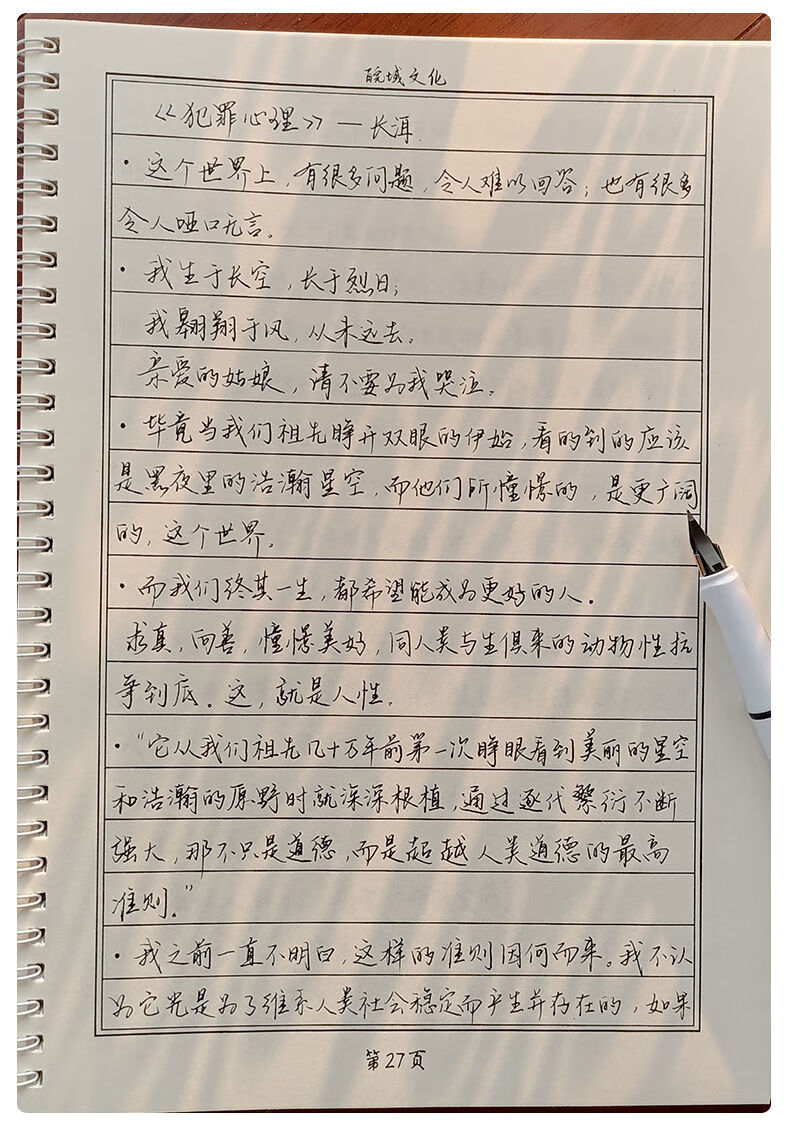 皖域文化
《犯罪心理》—长洱.
·这个世界上,有很多问题,令人难以回答;也有很多
令人哑口无言。
·我生于长空,长于烈日;
我翱翔于风,从未远去。
亲爱的姑娘,请不要为我哭泣。
·毕竟当我们祖先睁开双眼的伊始,看的到的应该
是黑夜里的浩瀚星空,而他们所憧憬的,是更广阔
的,这个世界。
·而我们终其一生,都希望能成为更好的人.
求真,向善,憧憬美好,同人类与生俱来的动物性抗
争到底.这,就是人性.
·"它从我们祖先几十万年前第一次睁眼看到美丽的星空
和浩瀚的原野时就深深根植,通过逐代繁衍不断
强大,那不只是道德,而是超越人类道德的最高
准则."
·我之前一直不明白,这样的准则因何而来。我不认
为它光是为了维系人类社会稳定而产生并存在的,如果
第27页